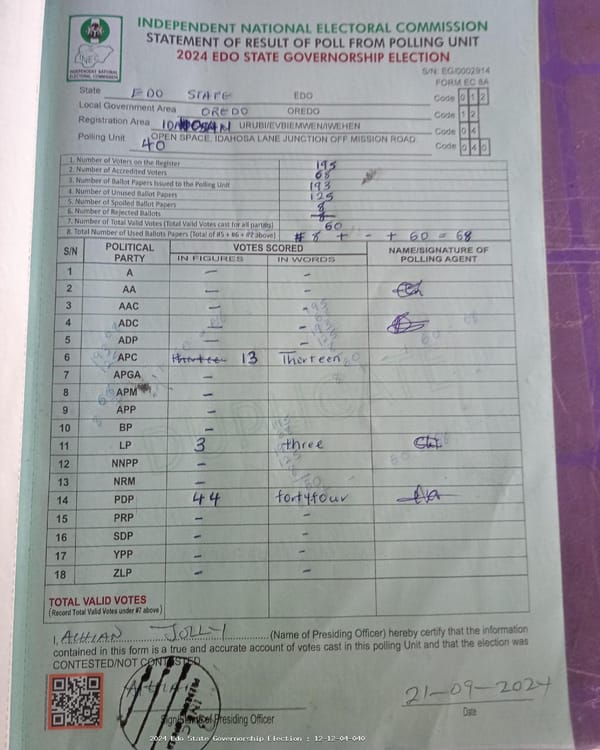 INDEPENDENT NATIONAL ELECTORAL COMMISSION
STATEMENT OF RESULT OF POLL FROM POLLING UNIT
2024 EDO STATE GOVERNORSHIP ELECTION
INEC
INDEPENDENT NATIONAL ELECTORAL COMMISSION
S/N: EG/0002914
FORM EC 8A
State EDO STATE EDO Code 0 1 2
Local Government Area OREDO OREDO Code 1 2
Registration Area URUBI/EVBIEMWEN/IWEHEN Code 0 4
Polling Unit 40 OPEN SPACE, IDAHOSA LANE JUNCTION OFF MISSION ROAD Code 0 4 0
1. Number of Voters on the Register 195
2. Number of Accredited Voters 68
3. Number of Ballot Papers Issued to the Polling Unit 193
4. Number of Unused Ballot Papers 125
5. Number of Spoiled Ballot Papers 8
6. Number of Rejected Ballots
7. Number of Total Valid Votes (Total Valid Votes cast for all parties) 60
8. Total Number of Used Ballots Papers (Total of #5 + #6 + #7 above) # 8 + - + 60 = 68
S/N POLITICAL PARTY VOTES SCORED NAME/SIGNATURE OF POLLING AGENT
IN FIGURES IN WORDS
1 A - -
2 AA - -
3 AAC - -
4 ADC - -
5 ADP - -
6 APC thirteen 13 Thirteen
7 APGA -
8 APM -
9 APP -
10 BP -
11 LP 3 three
12 NNPP -
13 NRM -
14 PDP 44 fortyfour
15 PRP - -
16 SDP - -
17 YPP - -
18 ZLP - -
TOTAL VALID VOTES
(Record Total Valid Votes under #7 above)
I, AIHIAN JOLLY (Name of Presiding Officer) hereby certify that the information
contained in this form is a true and accurate account of votes cast in this polling Unit and that the election was
CONTESTED/NOT CONTESTED
21-09-2024
Signature of Presiding Officer Date
2024 Edo State Governorship Election : 12-12-04-040